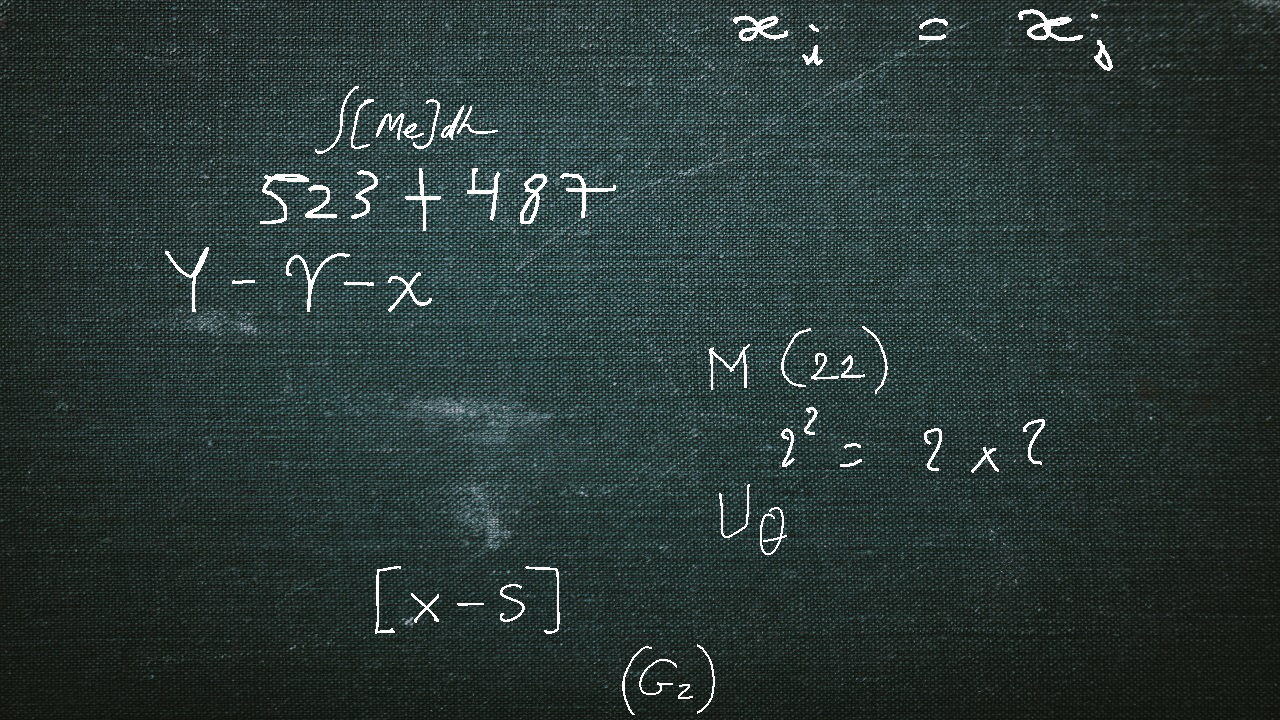 x_i = x_j
∫[Me]dh
523 + 487
Y - γ - x
M (22)
2² = 2 x 2
U_θ
[x - s]
(G_z)